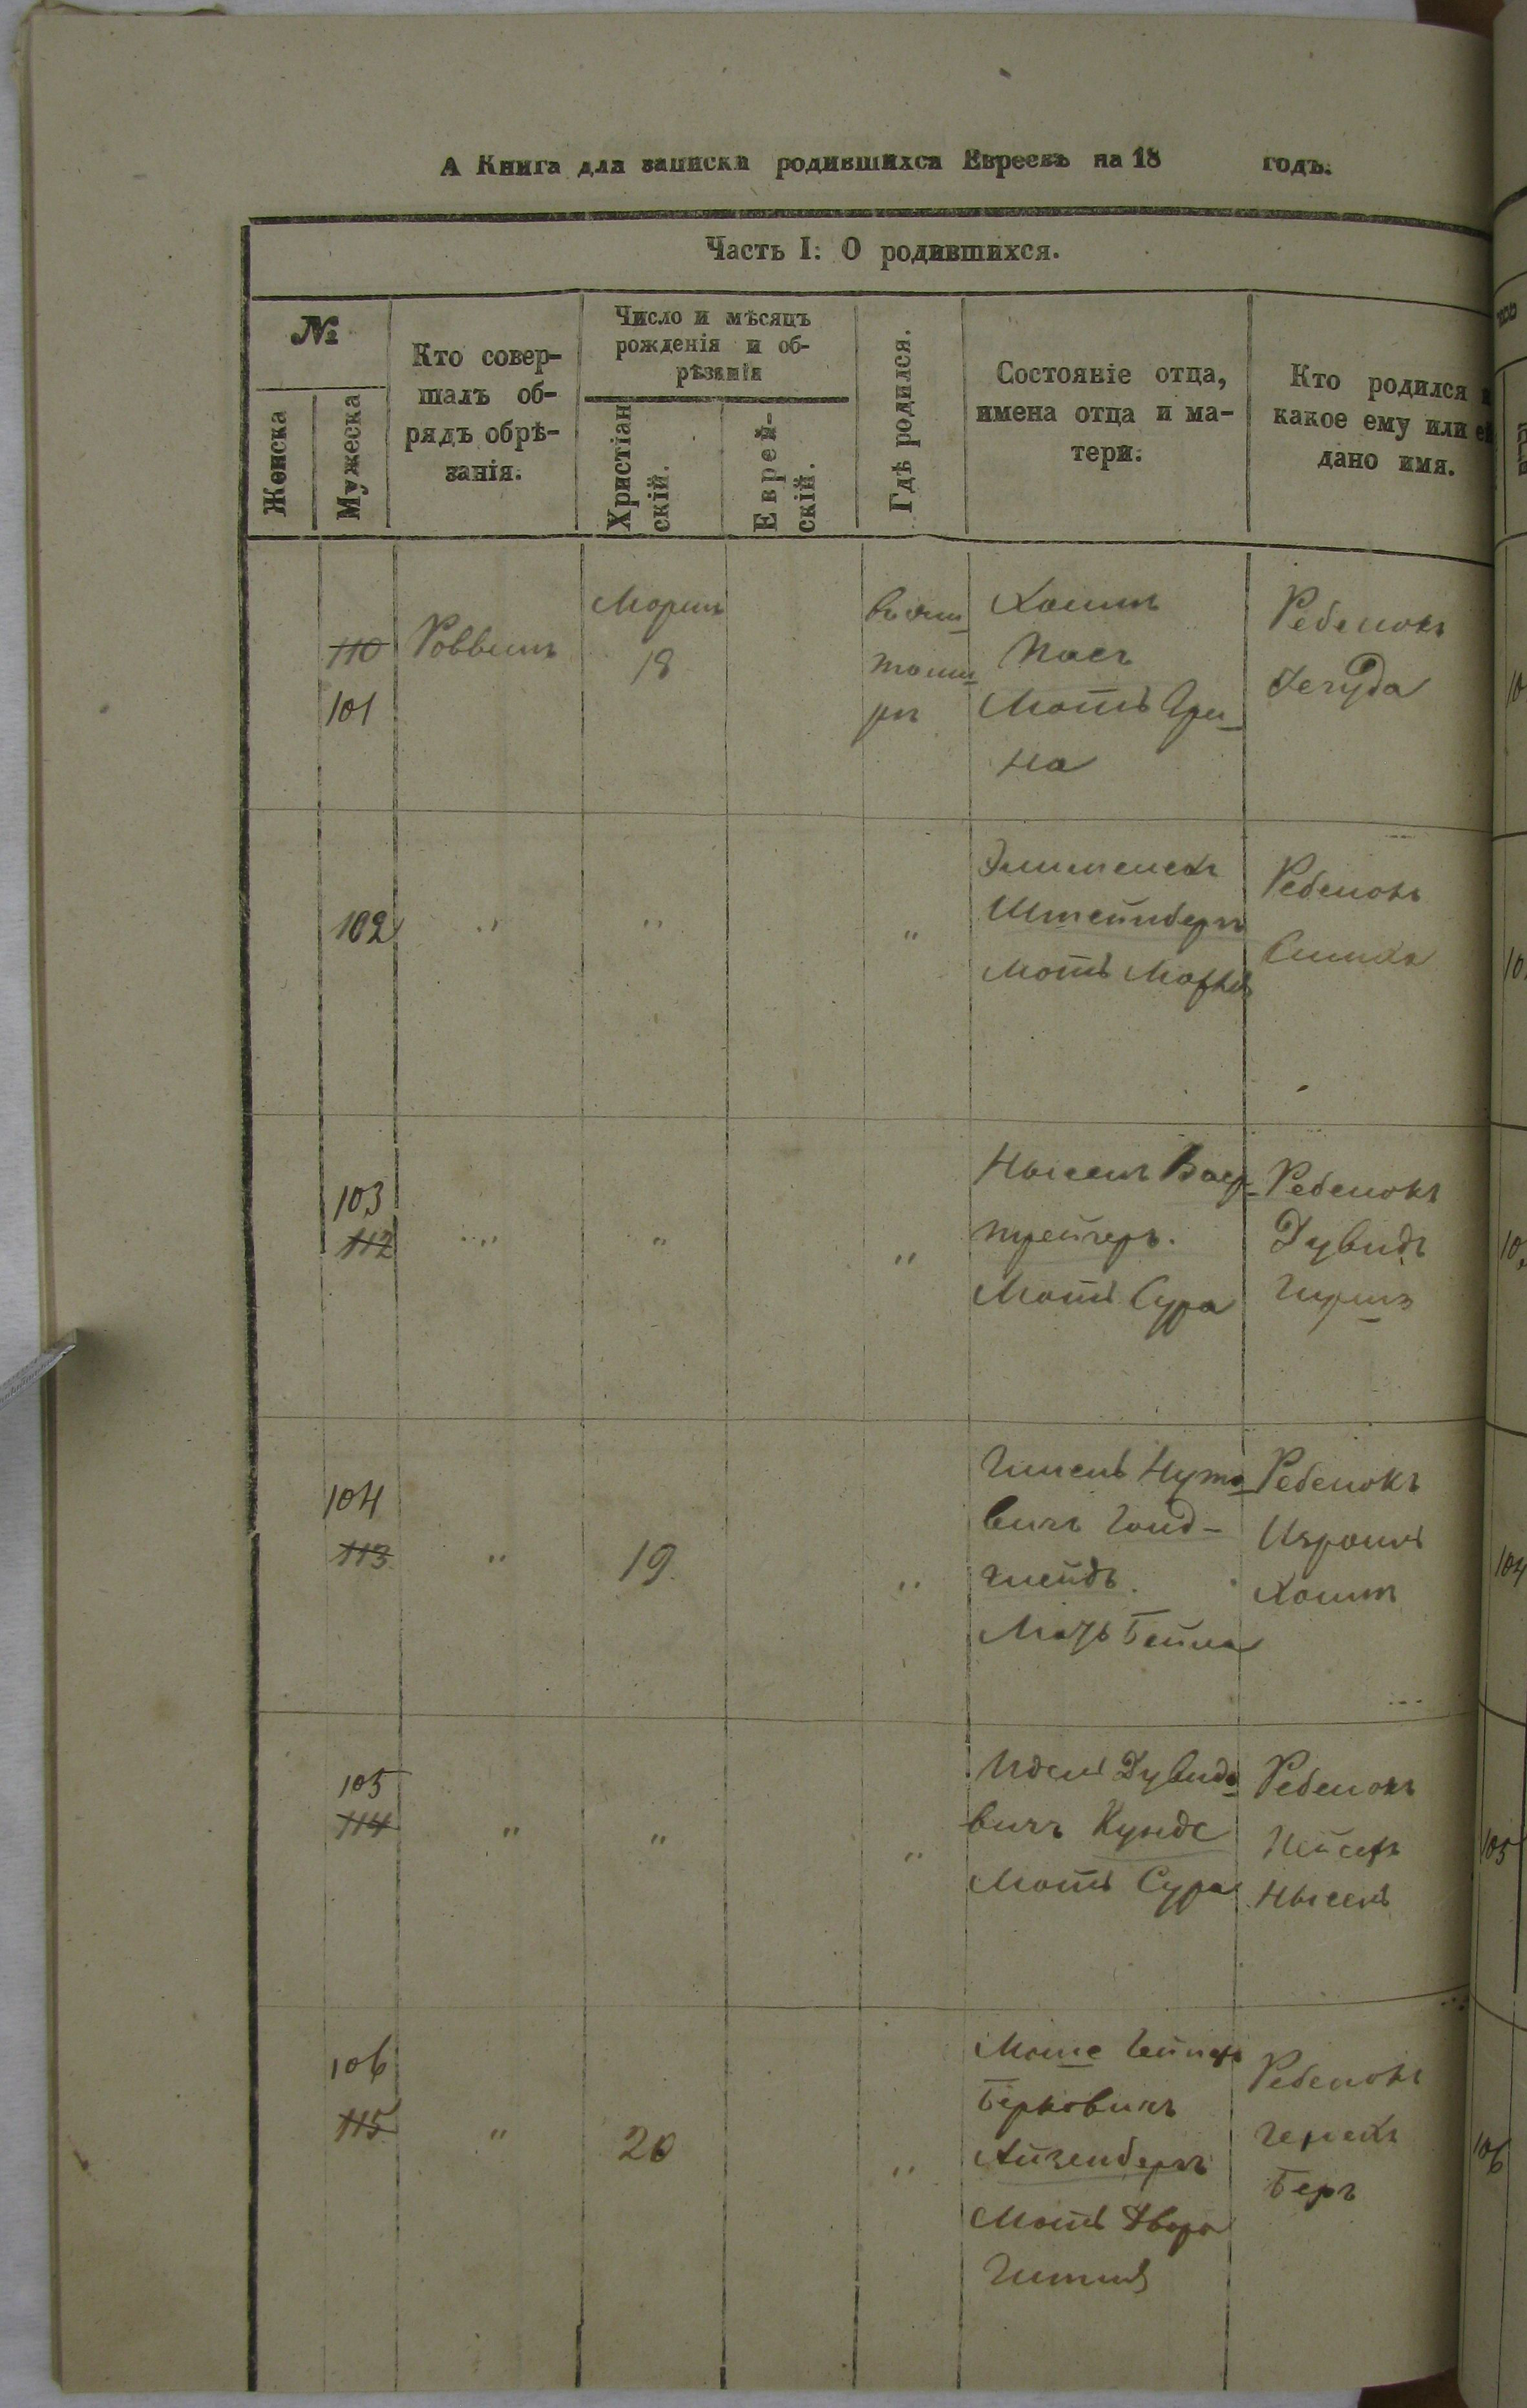 А Книга для записки родившихся Евреевъ на 18 годъ.
Часть I: О родившихся.
№
Женска
Мужеска
Кто совер-
шалъ об-
рядъ обрѣ-
занія.
Число и мѣсяцъ
рожденія и об-
рѣзанія
Христіан
скій.
Еврей-
скій.
Гдѣ родился.
Состояніе отца,
имена отца и ма-
тери.
Кто родился и
какое ему или ей
дано имя.
110
101
Раввинъ
Марта
18
въ Жи
томи
рѣ
Хаимъ
Мать
на
Ребенокъ
Іегуда
102
"
"
"
Штейнбергъ
Мать
Ребенокъ
Симха
103
112
"
"
"
Мать Сура
Ребенокъ
Дувидъ
Гершъ
104
113
"
19
"
вичъ Голд-
шейдъ.
Мать Бейла
Ребенокъ
Израиль
Хаимъ
105
114
"
"
"
Идель Дувидо
вичъ Кунде
Мать Сура
Ребенокъ
Пейсах
106
115
"
20
"
Берковичъ
Айзенбергъ
Мать Двора
Гитля
Ребенокъ
Беръ